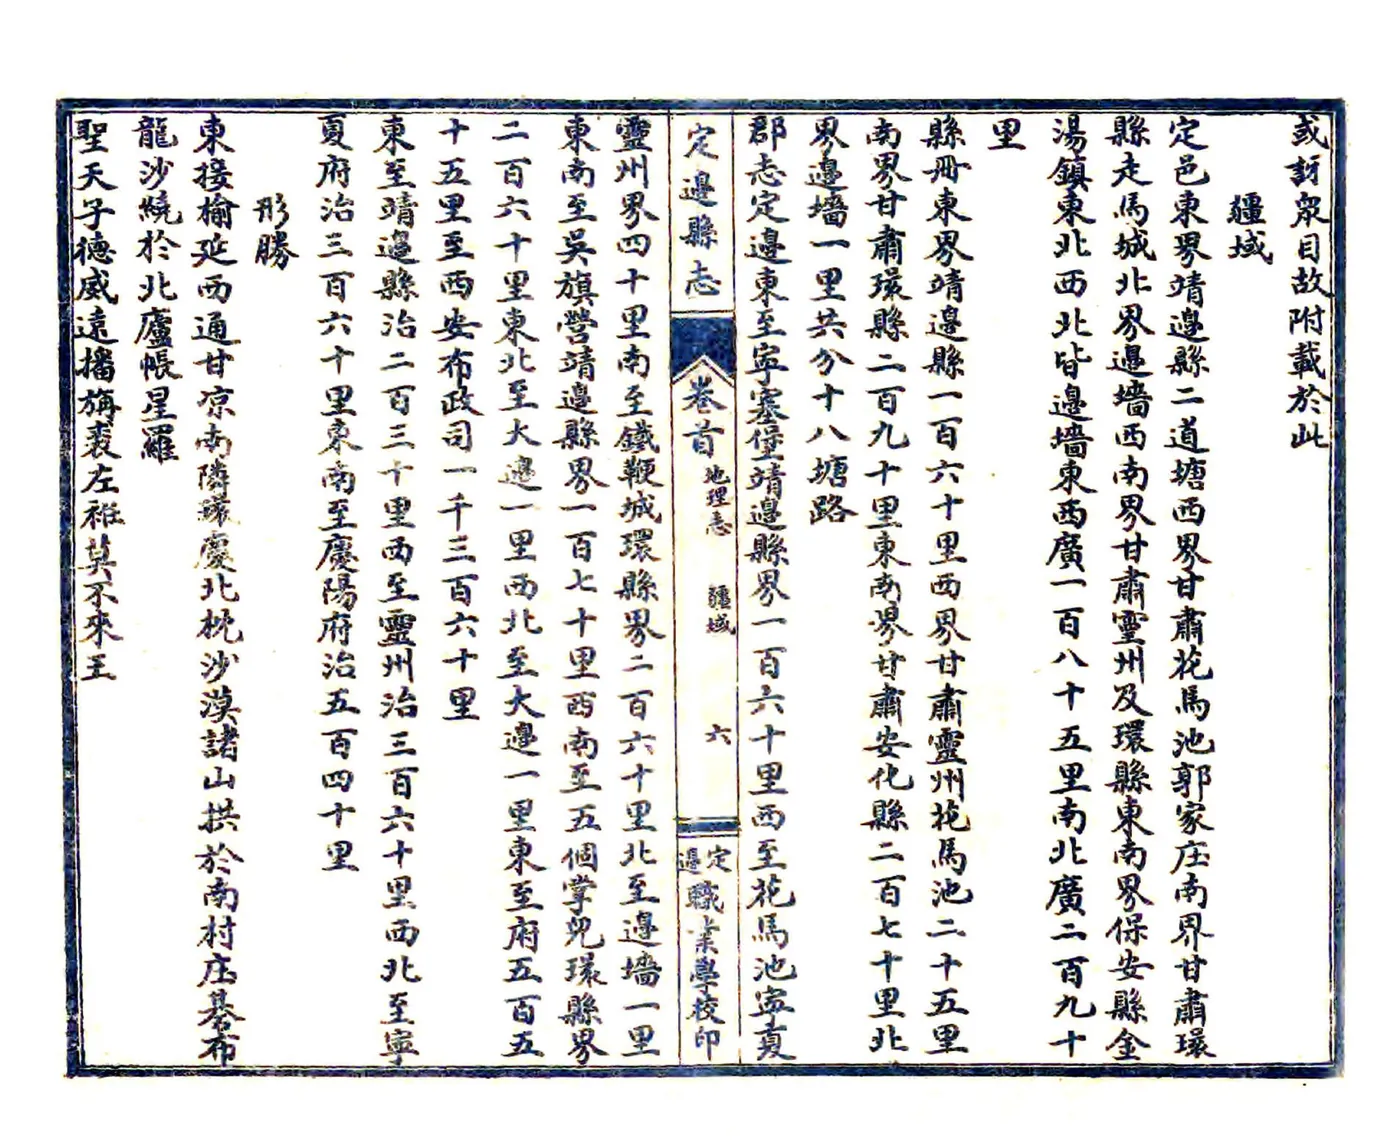 或訝眾目故附載於此
疆域
定邑東界靖邊縣二道塘西界甘肅花馬池郭家庄南界甘肅環
縣走馬城北界邊墻西南界甘肅靈州及環縣東南界保安縣金
湯鎮東北西北皆邊墻東西廣一百八十五里南北廣二百九十
里
縣冊東界靖邊縣一百六十里西界甘肅靈州花馬池二十五里
南界甘肅環縣二百九十里東南界甘肅安化縣二百七十里北
界邊墻一里共分十八塘路
郡志定邊東至寧塞堡靖邊縣界一百六十里西至花馬池寧夏
定邊縣志
卷首
地理志
疆域
六
定邊職業學校印
靈州界四十里南至鐵鞭城環縣界二百六十里北至邊墻一里
東南至吳旗營靖邊縣界一百七十里西南至五個掌兒環縣界
二百六十里東北至大邊一里西北至大邊一里東至府五百五
十五里至西安布政司一千三百六十里
東至靖邊縣治二百三十里西至靈州治三百六十里西北至寧
夏府治三百六十里東南至慶陽府治五百四十里
形勝
東接榆延西通甘凉南隣環慶北枕沙漠諸山拱於南村庄碁布
龍沙繞於北廬帳星羅
聖天子德威遠播旃裘左袵莫不來王